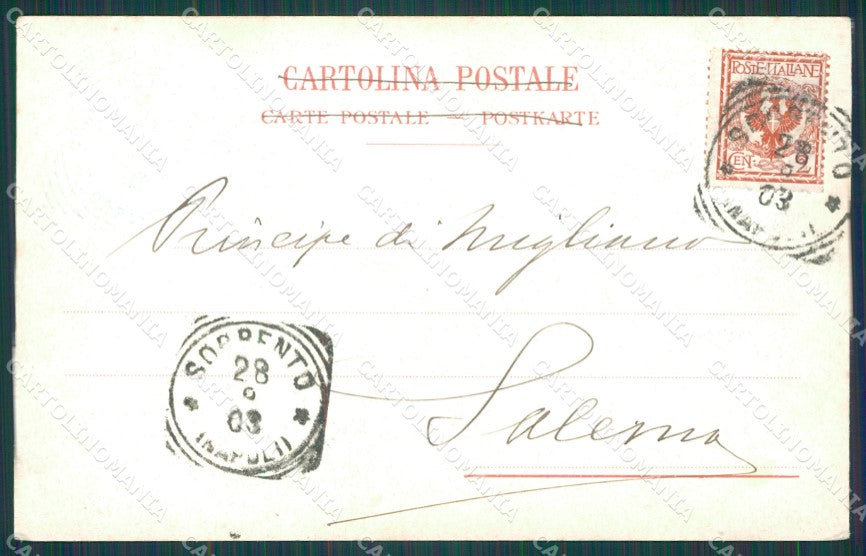 CARTOLINA POSTALE
CARTE POSTALE — POSTKARTE
POSTE ITALIANE
CEN. 2
28
03
(NAPOLI)
Principe di Migliano
SORRENTO
28
9
03
(NAPOLI)
Salerno
CARTOLINOMANIA